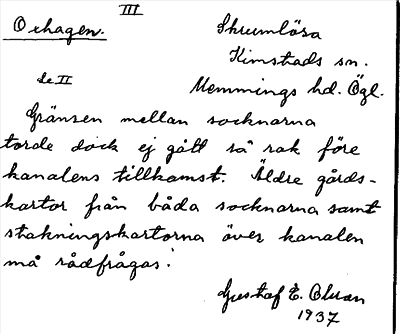 III
Oxhagen.
Skrumlösa
Kimstads sn.
se II
Memmings hd. Ögl.
Gränsen mellan socknarna
torde dock ej gått så rak före
kanalens tillkomst. Äldre gårds-
kartor från båda socknarna samt
stakningskartorna över kanalen
må rådfrågas.
Gustaf E.
1937